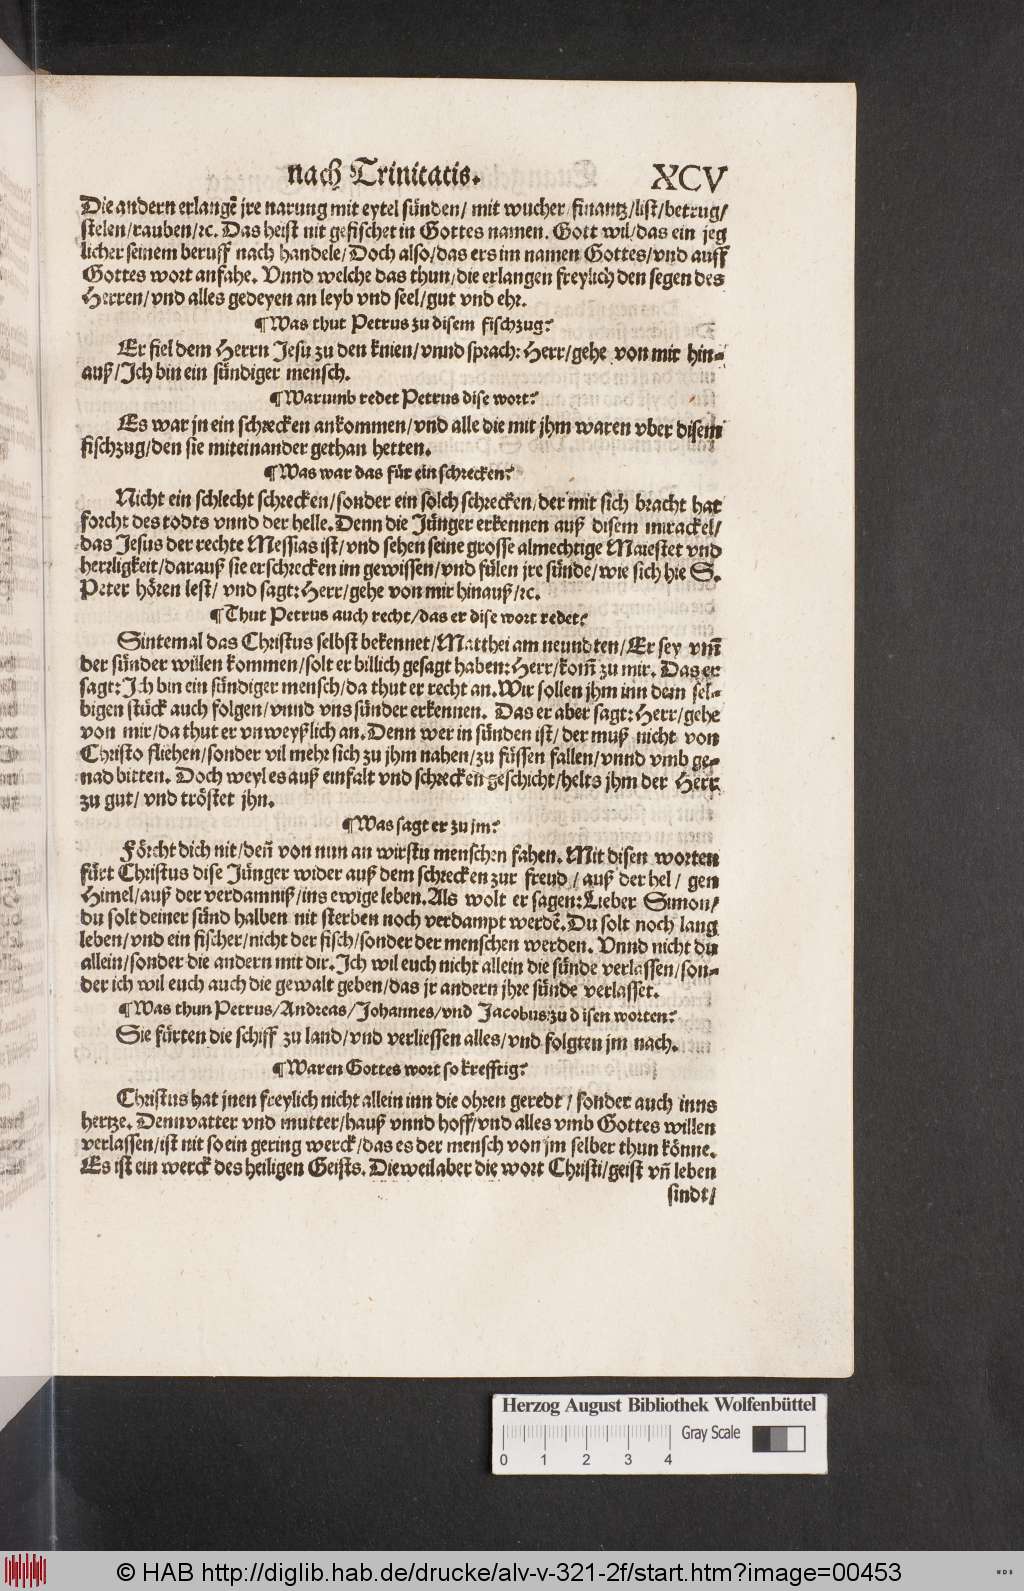 nach Trinitatis. XCV
Die andern erlangē jre narung mit eytel sünden/ mit wucher/finantz/list/betrug/
stelen/rauben/ꝛc. Das heist nit gefischet in Gottes namen. Gott wil/das ein jeg
licher seinem beruff nach handele/Doch also/das ers im namen Gottes/vnd auff
Gottes wort anfahe. Vnnd welche das thun/die erlangen freylich den segen des
Herren/vnd alles gedeyen an leyb vnd seel/gut vnd ehr.
¶Was thut Petrus zu disem fischzug?
Er fiel dem Herrn Jesu zu den knien/vnnd sprach: Herr/gehe von mir hin-
auß/Ich bin ein sündiger mensch.
¶Warumb redet Petrus dise wort?
Es war jn ein schrecken ankommen/vnd alle die mit jhm waren vber disem
fischzug/den sie miteinander gethan hetten.
¶Was war das für ein schrecken?
Nicht ein schlecht schrecken/sonder ein solch schrecken/der mit sich bracht hat
forcht des todts vnnd der helle. Denn die Jünger erkennen auß disem mirackel/
das Jesus der rechte Messias ist/vnd sehen seine grosse almechtige Maiestet vnd
herrligkeit/darauß sie erschrecken im gewissen/vnd fülen jre sünde/wie sich hie S.
Peter hören lest/ vnd sagt: Herr/gehe von mir hinauß/ꝛc.
¶Thut Petrus auch recht/das er dise wort redet?
Sintemal das Christus selbst bekennet/Matthei am neundten/Er sey vm̄
der sünder willen kommen/solt er billich gesagt haben: Herr/kom̄ zu mir. Das er
sagt: Ich bin ein sündiger mensch/da thut er recht an. Wir sollen jhm inn dem sel-
bigen stück auch folgen/vnnd vns sünder erkennen. Das er aber sagt: Herr/gehe
von mir/da thut er vnweyßlich an. Denn wer in sünden ist/ der muß nicht von
Christo fliehen/sonder vil mehr sich zu jhm nahen/zu füssen fallen/vnnd vmb ge-
nad bitten. Doch weyl es auß einfalt vnd schrecken geschicht/helts jhm der Herr
zu gut/ vnd tröstet jhn.
¶Was sagt er zu jm?
Förcht dich nit/deñ von nun an wirstu menschen fahen. Mit disen worten
fürt Christus dise Jünger wider auß dem schrecken zur freud/ auß der hel/ gen
Himel/auß der verdamniß/ins ewige leben. Als wolt er sagen: Lieber Simon/
du solt deiner sünd halben nit sterben noch verdampt werdē. Du solt noch lang
leben/vnd ein fischer/nicht der fisch/sonder der menschen werden. Vnnd nicht du
allein/sonder die andern mit dir. Ich wil euch nicht allein die sünde verlassen/son-
der ich wil euch auch die gewalt geben/das jr andern jhre sünde verlasset.
¶Was thun Petrus/Andreas/Johannes/vnd Jacobus/zu disen worten?
Sie fürten die schiff zu land/vnd verliessen alles/vnd folgten jm nach.
¶Waren Gottes wort so krefftig?
Christus hat jnen freylich nicht allein inn die ohren geredt/ sonder auch inns
hertze. Denn vatter vnd mutter/hauß vnnd hoff/vnd alles vmb Gottes willen
verlassen/ist nit so ein gering werck/das es der mensch von jm selber thun könne.
Es ist ein werck des heiligen Geists. Die weil aber die wort Christi/geist vñ leben
sindt/
Herzog August Bibliothek Wolfenbüttel
Gray Scale
0 1 2 3 4
© HAB http://diglib.hab.de/drucke/alv-v-321-2f/start.htm?image=00453